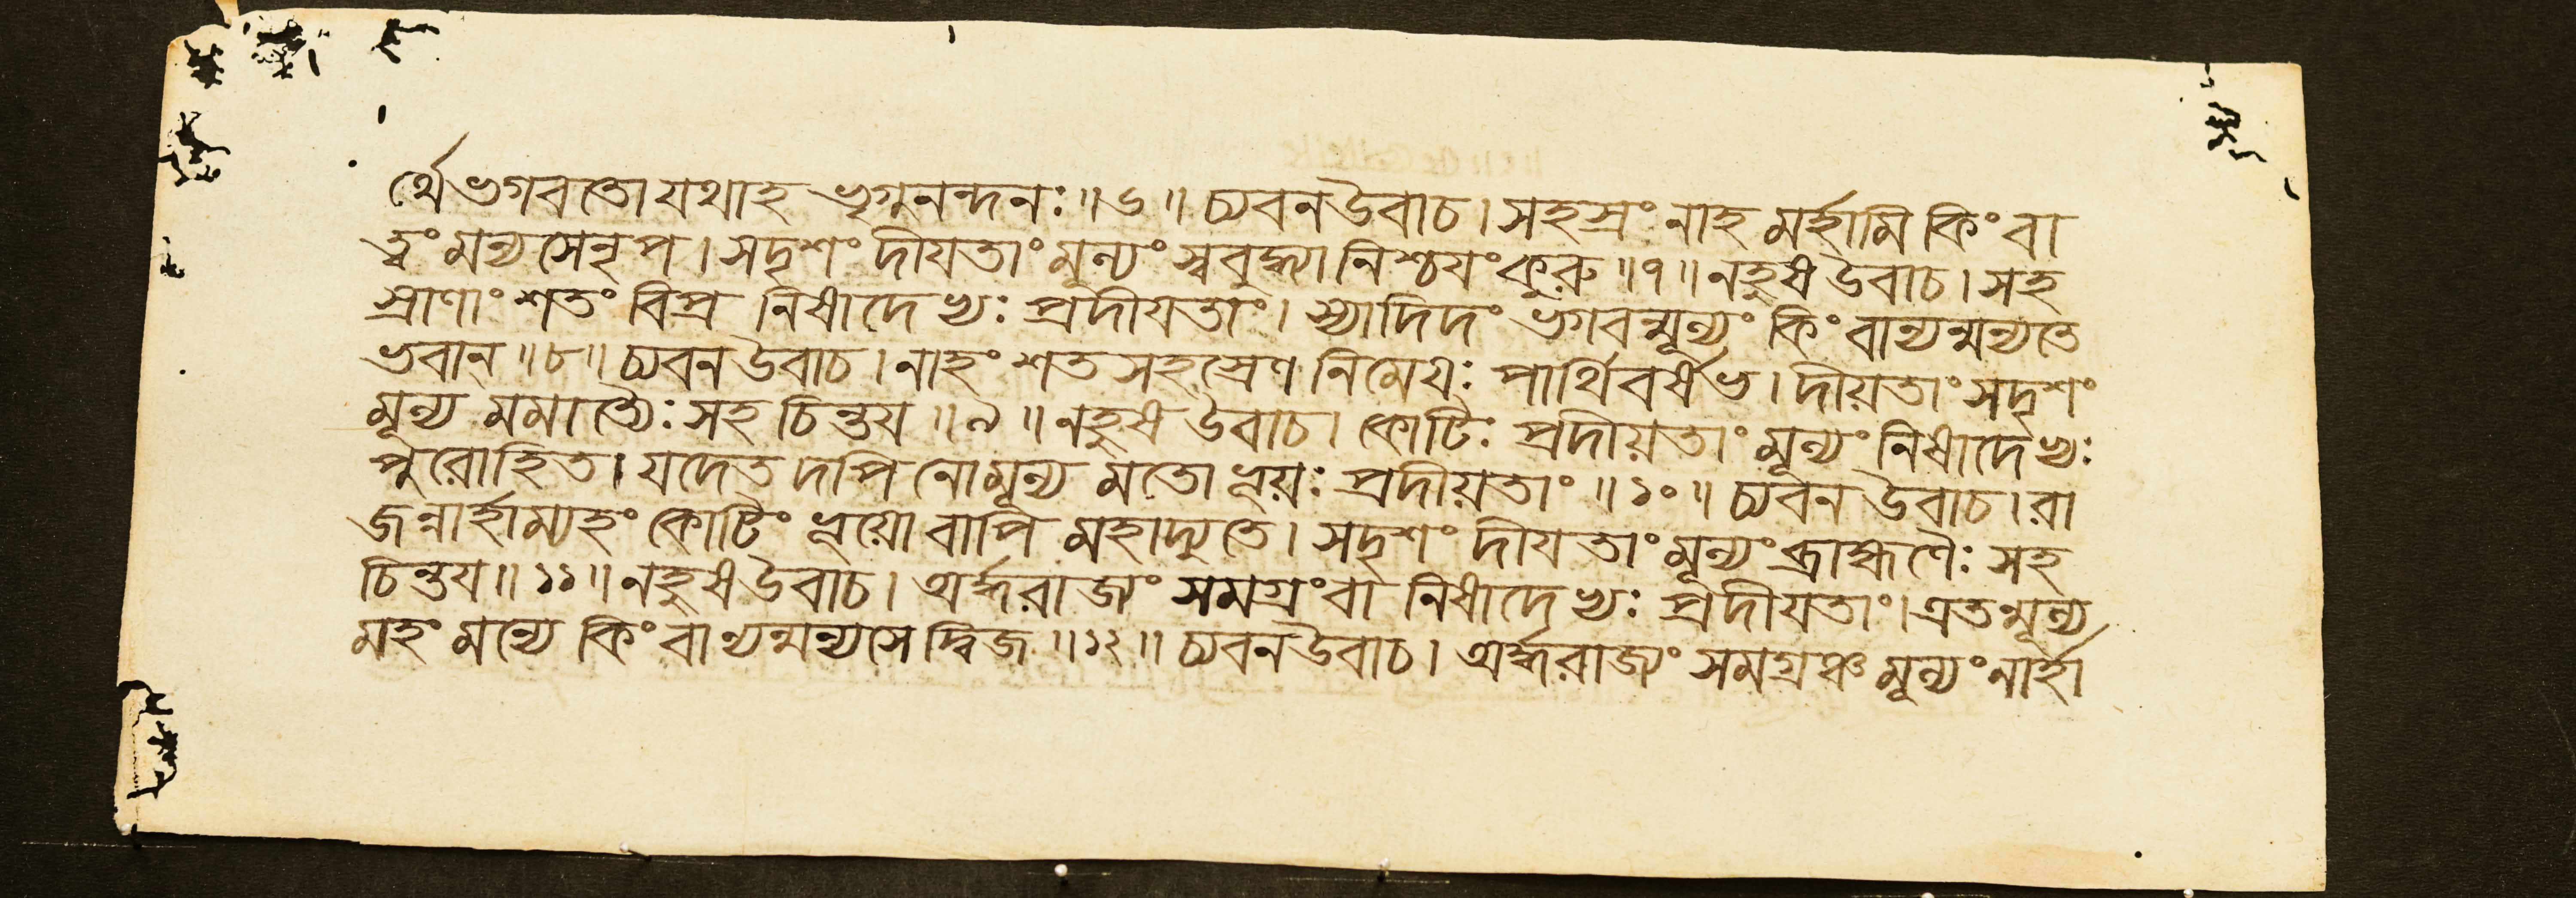 র্থে ভগবতো যথাহ ভৃগুনন্দনঃ ॥ ৬ ॥ চ্যবন উবাচ । সহস্রং নাহ মর্হামি কিং বা
ত্বং মন্যসে নৃপ । সদৃশং দীযতাং মূল্যং স্ববুদ্ধ্যা নিশ্চযং কুরু ॥ ৭ ॥ নহুষ উবাচ । সহ
স্রাণাং শতং বিপ্র নিষাদেভ্যঃ প্রদীযতাং । স্যাদিদং ভগবন্মূল্যং কিং বান্যন্মন্যতে
ভবান্ ॥ ৮ ॥ চ্যবন উবাচ । নাহং শতসহস্রেণ নিমেযঃ পার্থিবর্ষভ । দীয়তাং সদৃশং
মূল্য মমাত্যৈঃ সহ চিন্তয ॥ ৯ ॥ নহুষ উবাচ । কোটিঃ প্রদীয়তাং মূল্যং নিষাদেভ্যঃ
পুরোহিত । যদেতদপি নো মূল্য মতো ভূয়ঃ প্রদীয়তাং ॥ ১০ ॥ চ্যবন উবাচ । রা
জন্নার্হাম্যহং কোটিং ভূয়ো বাপি মহাদ্যুতে । সদৃশং দীযতাং মূল্যং ব্রাহ্মণৈঃ সহ
চিন্তয ॥ ১১ ॥ নহুষ উবাচ । অর্দ্ধরাজ্যং সমগ্রং বা নিষাদেভ্যঃ প্রদীযতাং । এতন্মূল্য
মহং মন্যে কিং বান্যন্মন্যসে দ্বিজ ॥ ১২ ॥ চ্যবন উবাচ । অর্দ্ধরাজ্যং সমগ্রঞ্চ মূল্যং নার্হা